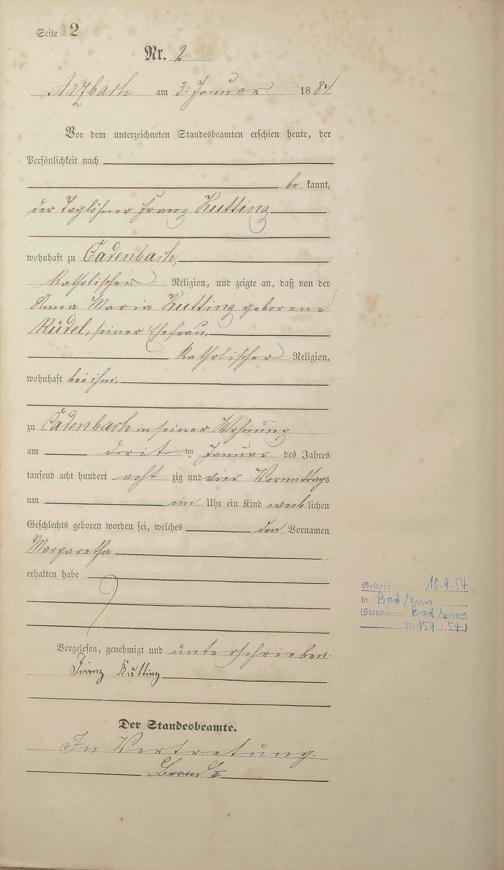 Seite 2
Nr. 2
Arzbach am 3. Januar 1884
Vor dem unterzeichneten Standesbeamten erschien heute, der
Persönlichkeit nach
be kannt,
der Taglöhner Franz Kutting
wohnhaft zu Cadenbach,
katholischer Religion, und zeigte an, daß von der
Anna Maria Kutting geborene
Rüdel, seiner Ehefrau,
katholischer Religion,
wohnhaft bei ihm,
zu Cadenbach in seiner Wohnung
am Januar des Jahres
tausend acht hundert acht zig und vier Vormittags
um ein Uhr ein Kind weib lichen
Geschlechts geboren worden sei, welches den Vornamen
Margaretha
erhalten habe
Vorgelesen, genehmigt und unterschrieben:
Franz Kutting
Der Standesbeamte.
In Vertretung
Gestorb. 10.9.57
in Bad Ems
(Standesamt Bad Ems
Nr. 159 / 57)